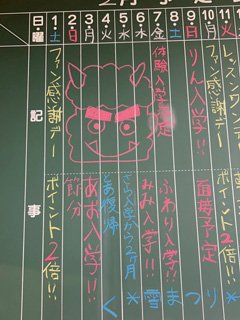 2月
日・曜
記事
1・土
ファン感謝デー
ポイント2倍!!
2・日
節分
3・月
あお入学!!
4・火
とあ復帰
5・水
さら入学から2ヶ月
6・木
みみ入学!!
7・金
体験入学
8・土
ふわり入学!!
9・日
りん入学!!
10・月
ファン感謝デー
予定
11・火
レッスンワン
ポイント2倍!!
く*雪まつり*